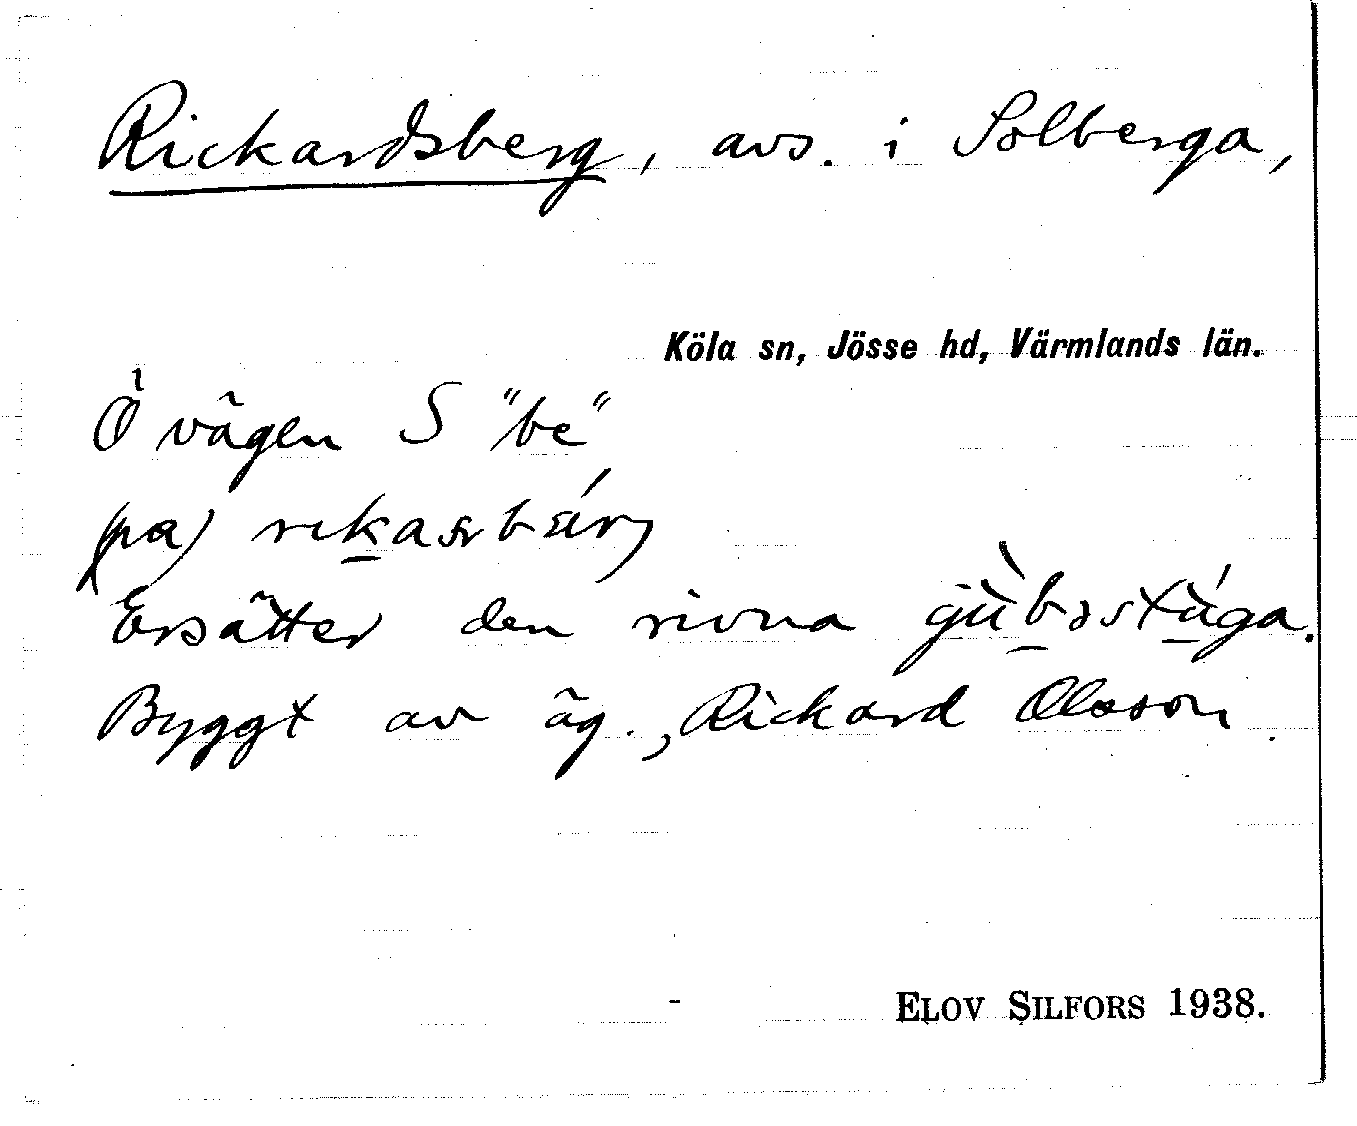 Rickardsberg, avs. i Solberga,
Köla sn, Jösse hd, Värmlands län.
Ö vägen S "be"
(pa) rikasrbärj
Ersätter den rivna gùbəstúga.
Byggt av äg., Rickard Olsson.
ELOV SILFORS 1938.